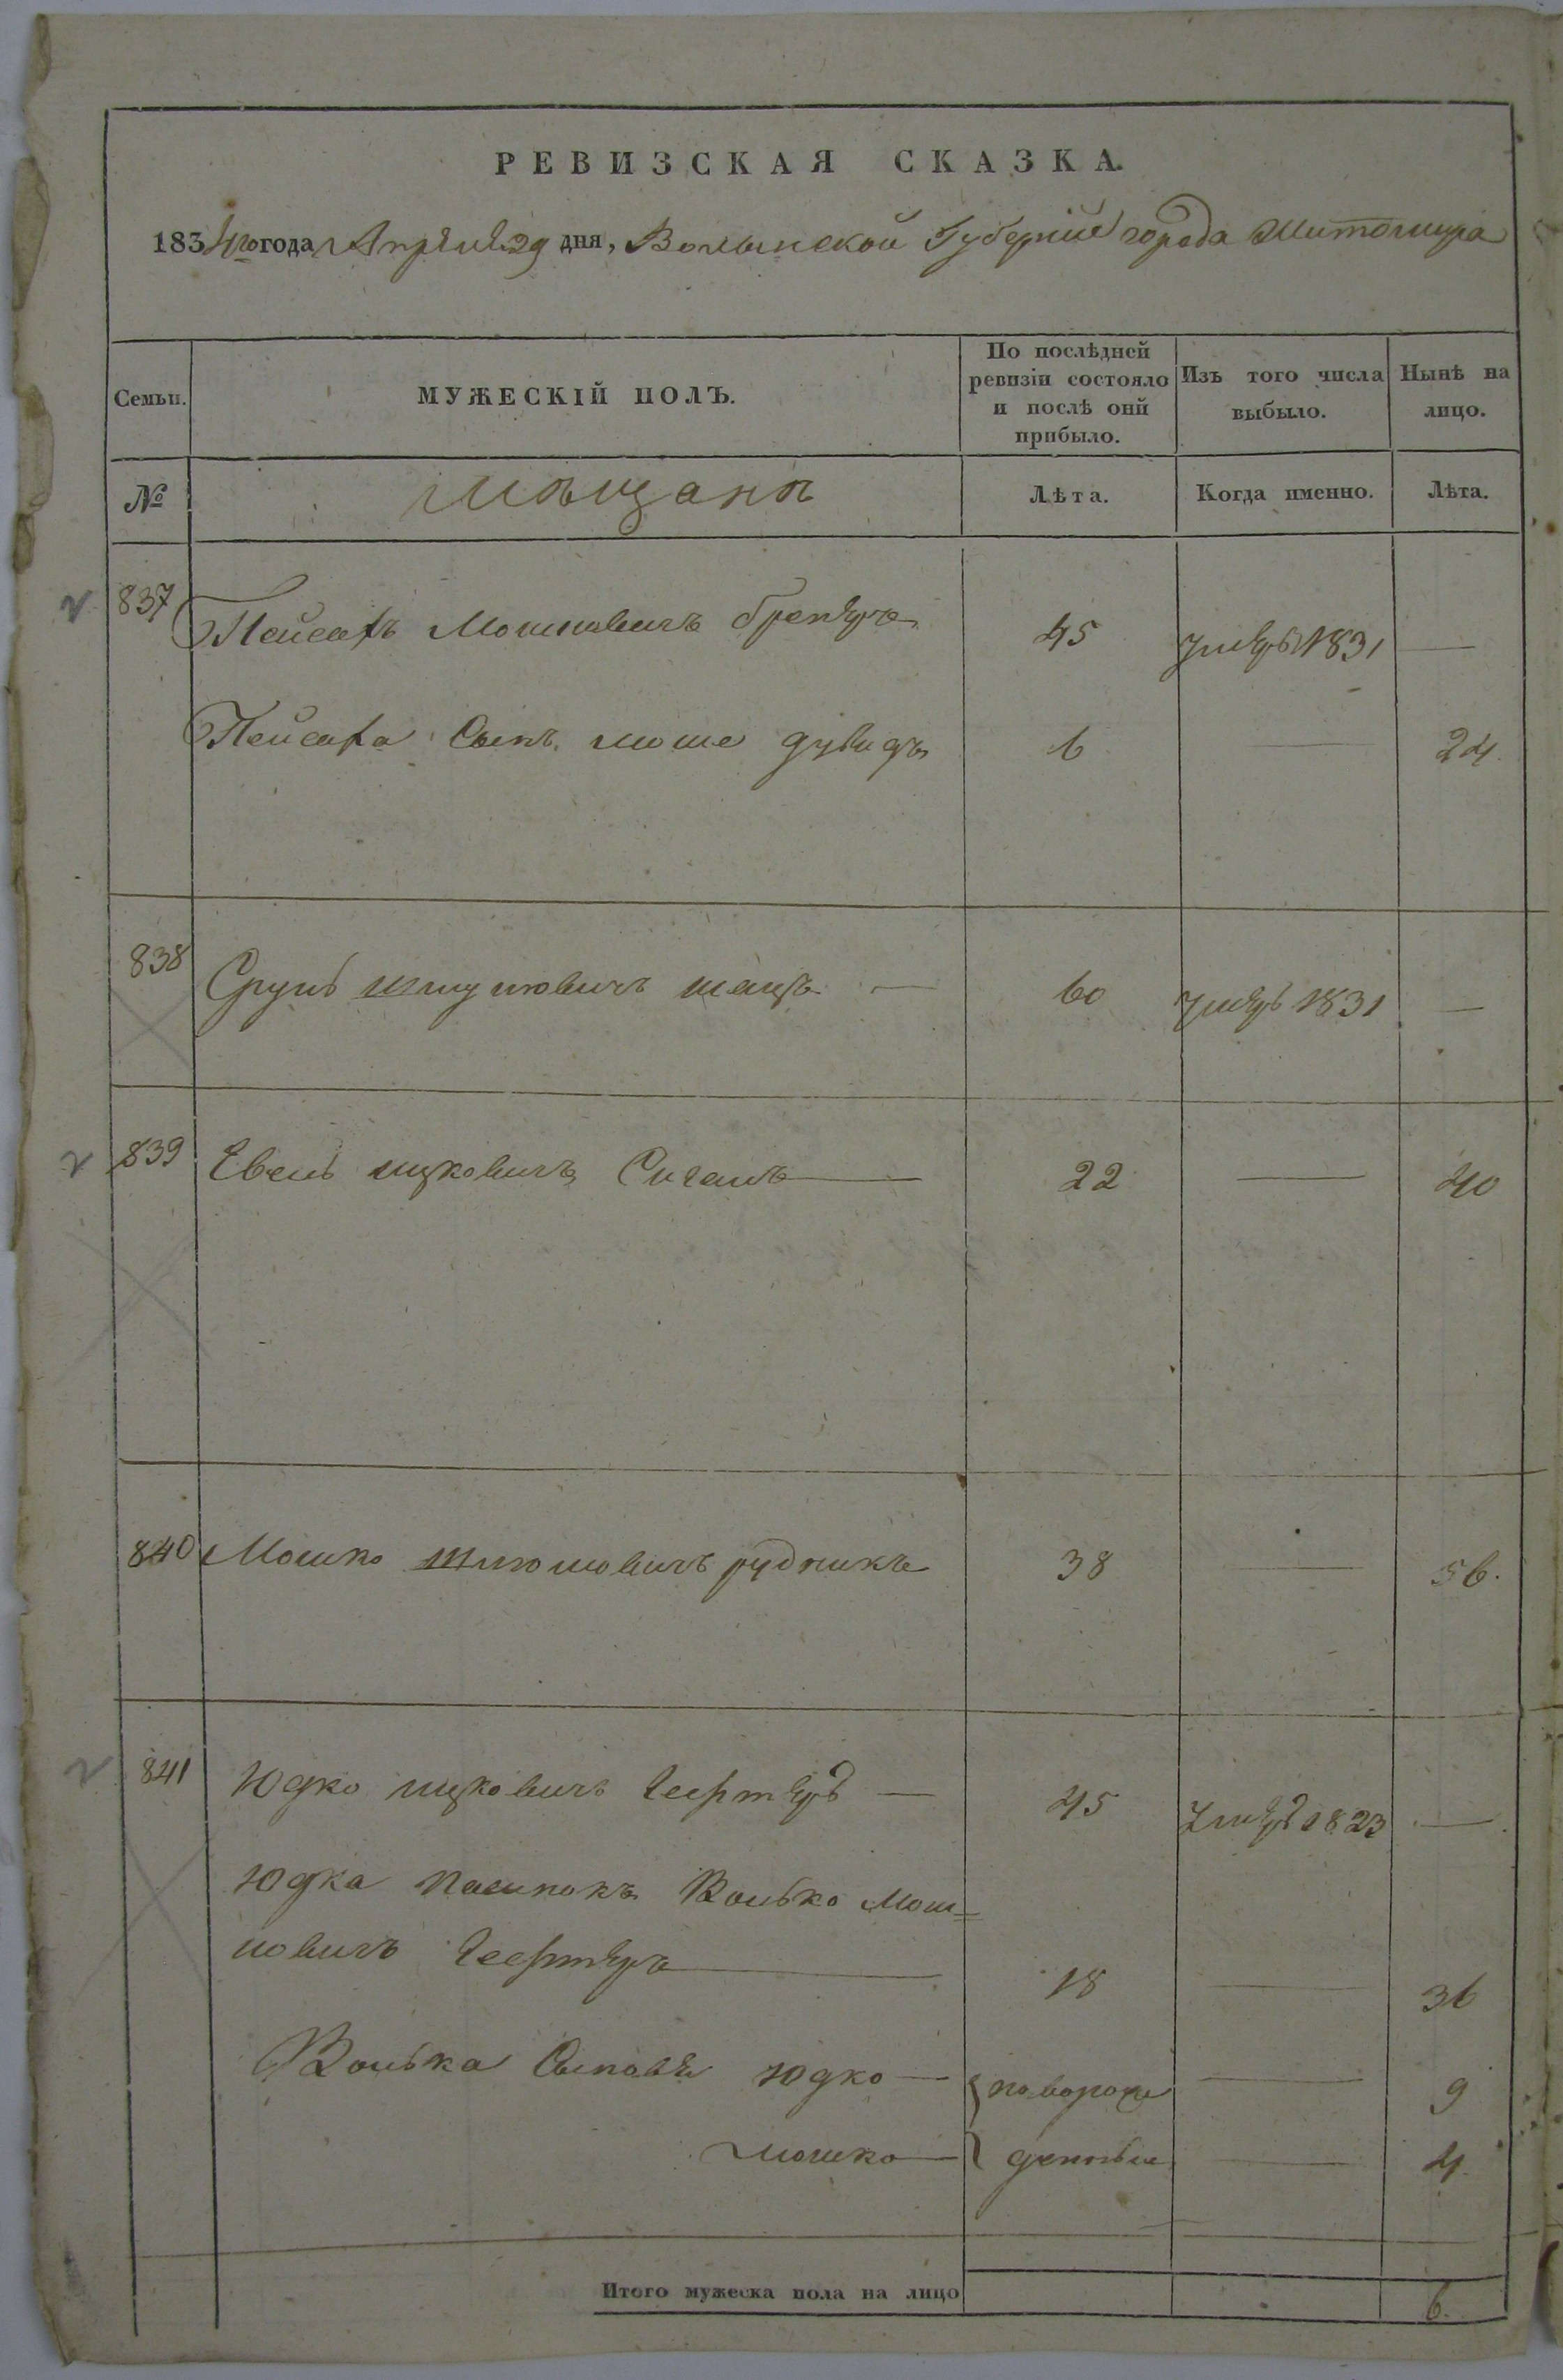 РЕВИЗСКАЯ СКАЗКА.
1834го года Апрѣля 29 дня, Волынской Губернии города Житомира
Семьи.
МУЖЕСКІЙ ПОЛЪ.
По послѣдней ревизіи состояло и послѣ онй прибыло.
Изъ того числа выбыло.
Нынѣ на лицо.
№
Мѣщанъ
Лѣта.
Когда именно.
Лѣта.
837 Пейсахъ Мошковичъ 45 умеръ 1831 —
Пейсаха Сынъ моше дувидъ 6 — 24.
838 Сруль шмулювичъ 60 умеръ 1831 —
839 ицковичъ 22 — 40
840 Мошко Шлюмовичъ рудникъ 38 — 56.
841 Юдко ицковичъ — 45 умеръ 1823 —
Юдка Волько Мош=
ковичъ 18 — 36
Волька Сыновья Юдко — новорож — 9
мошко — денные — 4.
Итого мужеска пола на лицо 6.